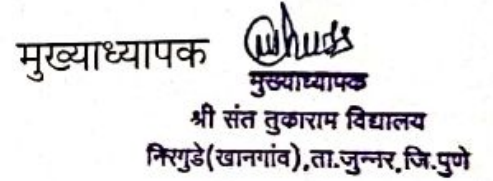 मुख्याध्यापक
मुख्याध्यापक
श्री संत तुकाराम विद्यालय
निरगुडे(खानगांव),ता.जुन्नर,जि.पुणे